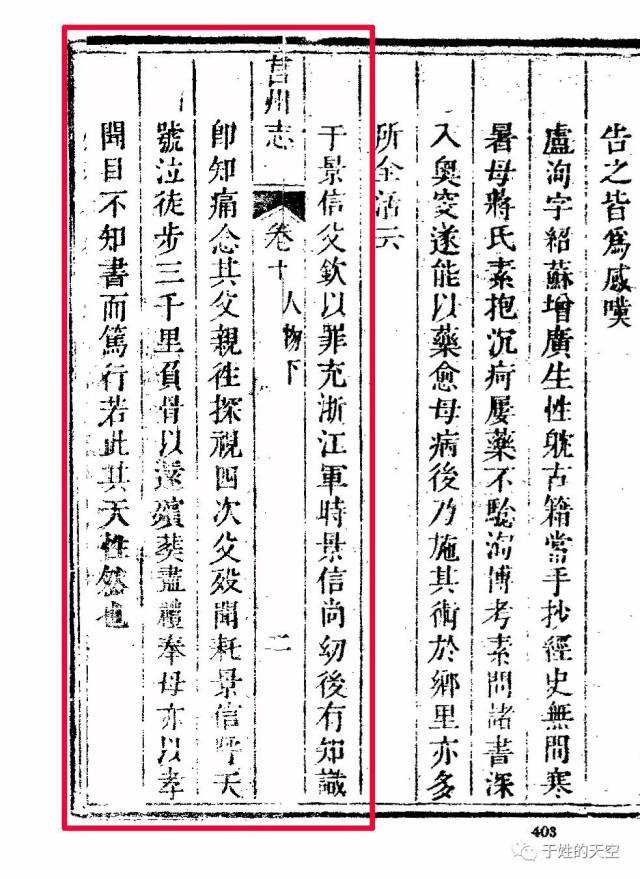 告之皆爲感嘆
盧洵字紹蘇增廣生性躭古籍嘗手抄經史無間寒
暑母蔣氏素抱沉疴屢藥不驗洵博考素問諸書深
入奧窔遂能以藥愈母病後乃施其術於鄉里亦多
所全活云
于景信父欽以罪充浙江軍時景信尚幼後有知識
莒州志
卷十
人物下
二
卽知痛念其父親徃探視四次父歿聞耗景信呼天
號泣徒步三千里負骨以還殯葬盡禮奉母亦以孝
聞目不知書而篤行若此其天性然也
403
于姓的天空